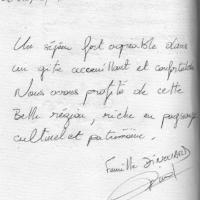 Un séjour fort agréable dans
un gîte accueillant et confortable
Nous avons profité de cette
Belle région, riche en paysage
culturel et patrimoine.
Famille